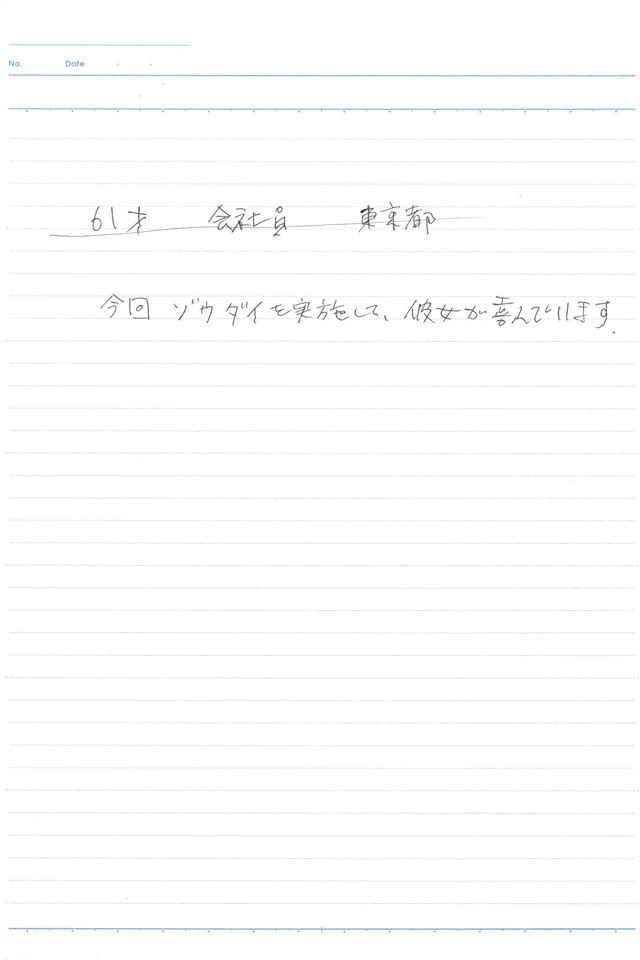 No. Date
61才 会社員 東京都
今回 ゾウダイを実施して、彼女が喜んでいます.